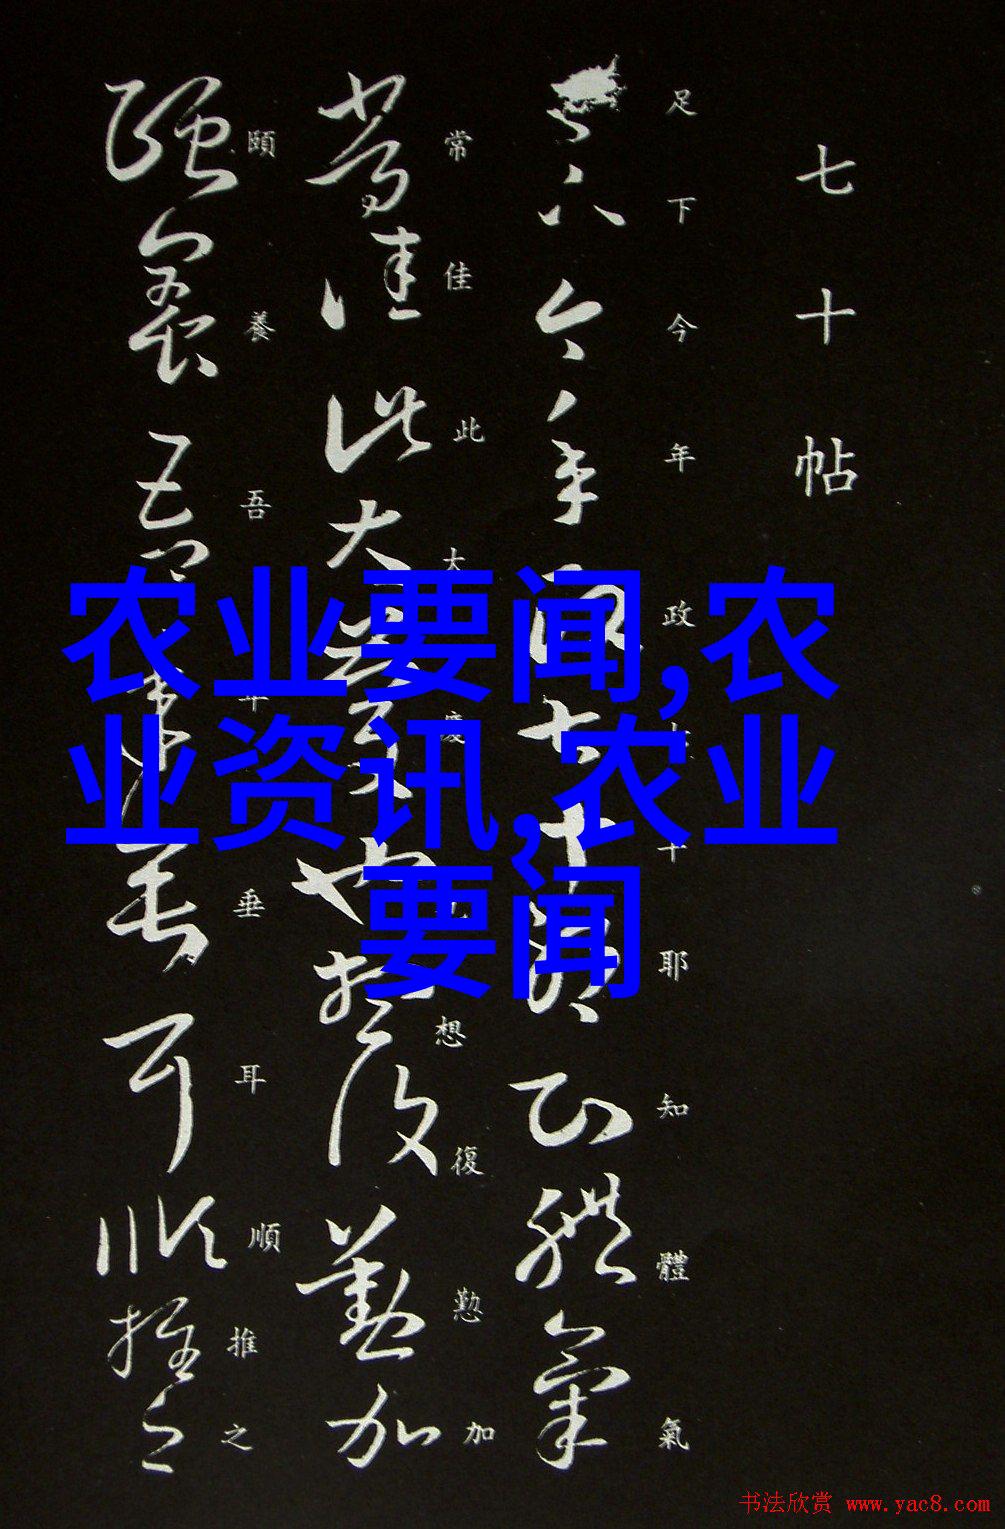 七十帖
足下今年政十耶知體氣
常佳此大慶想復懃加
頤養吾年垂耳順推之
农业要闻,农
业资讯,农业
要闻
书法欣赏 www.yac8.com